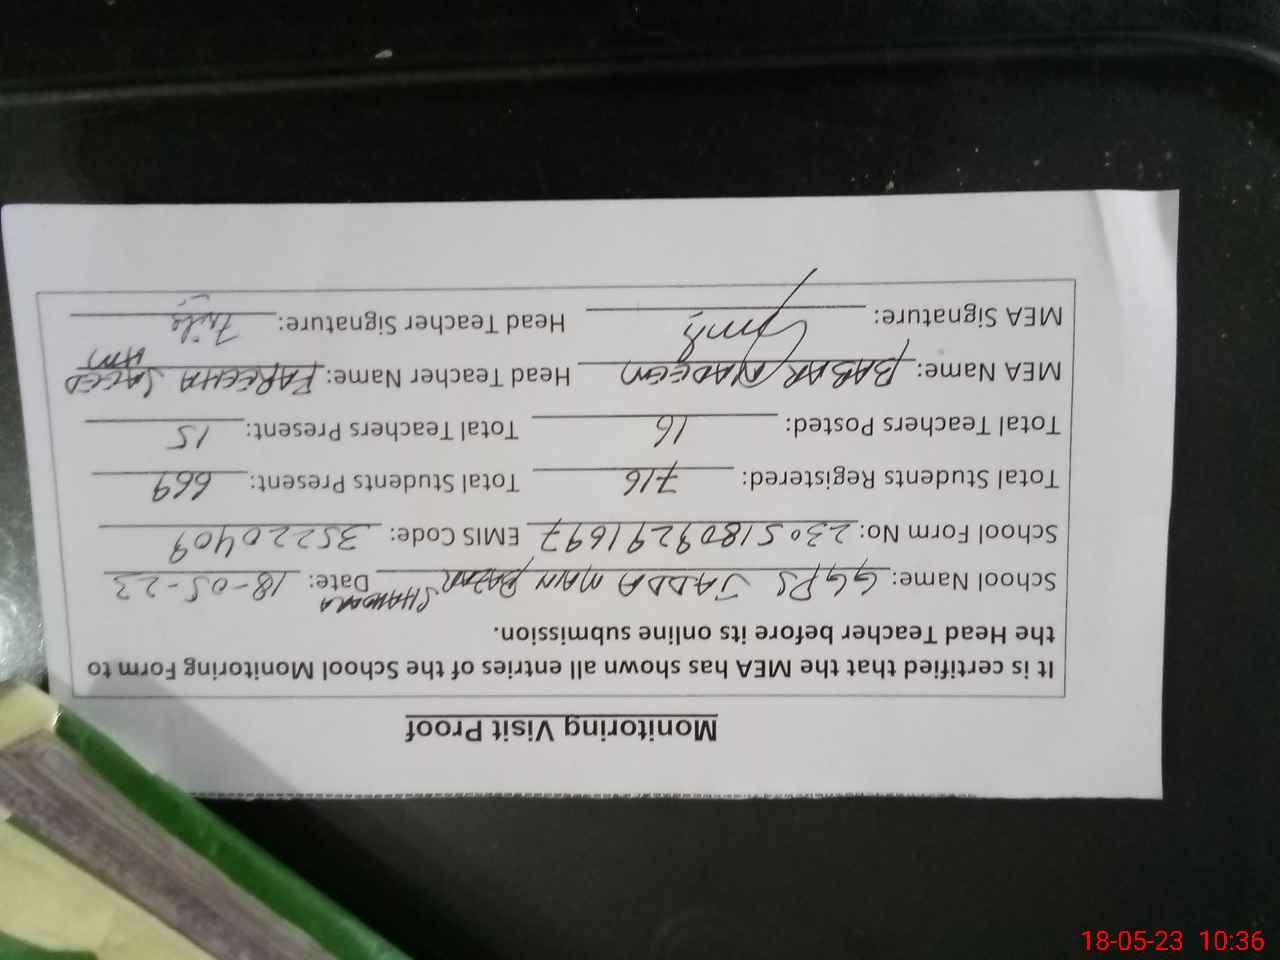 Monitoring Visit Proof
It is certified that the MEA has shown all entries of the School Monitoring Form to
the Head Teacher before its online submission.
School Name: GGPS JADDA MAIN BAZAR SHAHDARA Date: 18-05-23
School Form No: 23051809291697 EMIS Code: 35220409
Total Students Registered: 716 Total Students Present: 669
Total Teachers Posted: 16 Total Teachers Present: 15
MEA Name: BABAR NADEEM Head Teacher Name: FAREEHA SAEED
MEA Signature: Head Teacher Signature:
18-05-23 10:36